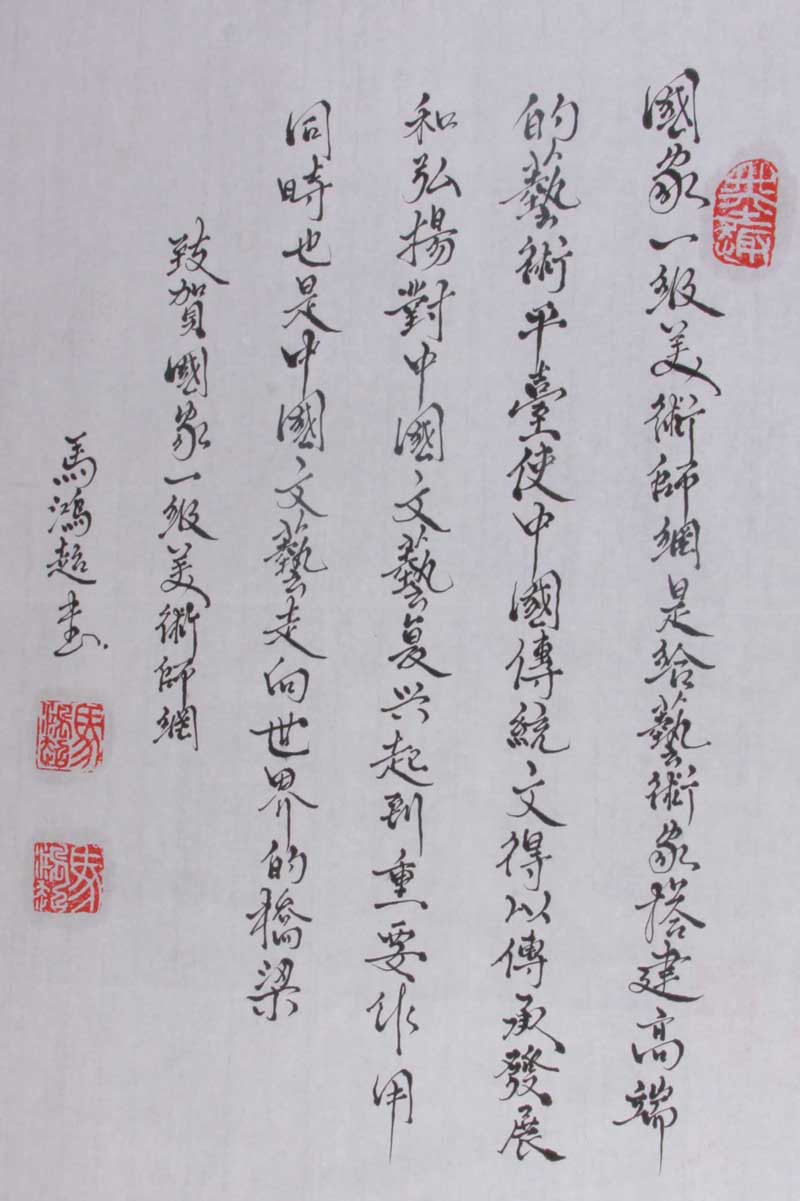 國家一级美術師網是给藝術家搭建高端
的藝術平臺使中國傳統文得以傳承發展
和弘揚對中國文藝复兴起到重要作用
同時也是中國文藝走向世界的橋梁
致賀國家一级美術師網
馬鴻超書
馬鴻超
馬鴻超